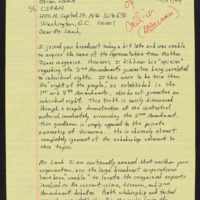 Brian Lamb
C/O CSPAN
400 N. Capitol St. NW Suite 650
Washington, D.C. 20001
Dear Mr. Lamb,
I joined your broadcast today a bit late and was unable
to acquire the name of the Representative from Mother
Jones magazine. However, I did hear his "opinion"
regarding the 2nd Amendments guarantee being unrelated to
to individual rights. If this were to be true then
the "right of the people," as established in the
1st and 4th Amendments, also do not promote an
individual right. This truth is easily discovered
through a simple examination of the contextual
material immediately surrounding the 2nd Amendment.
This gentleman is simply opposed to the private
ownership of firearms. He is obviously almost
completely ignorant of the scholarship relevant to
this topic.
Mr. Lamb I am continually amazed that neither your
organization, nor the large broadcast corporations
have been unable to locate the recognized experts
involved in the current crime, firearms, and 2nd
Amendment debates. Both scholarship and tested